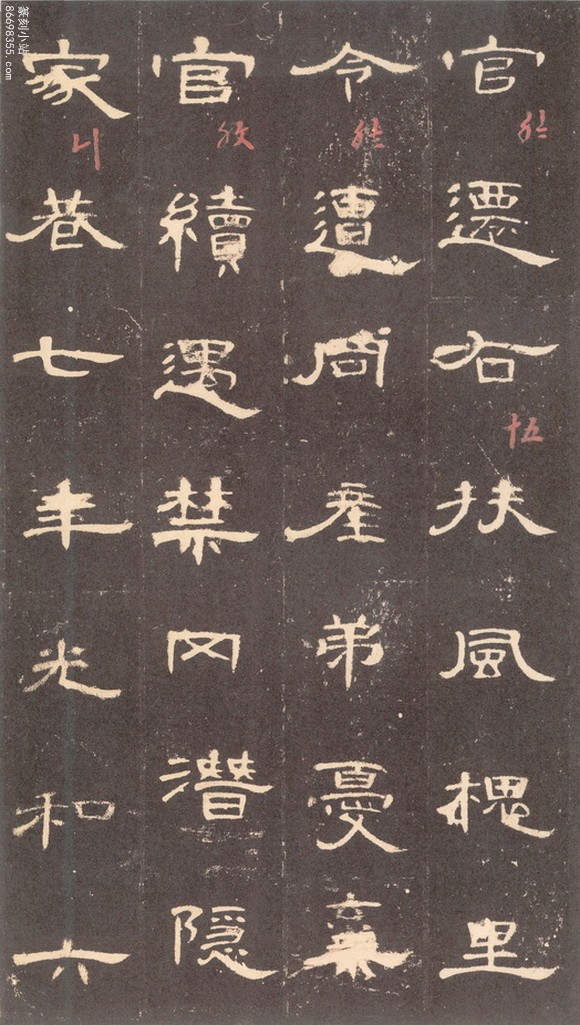 官遷右扶風槐里
令遭同產弟憂棄
官續遇禁网潛隱
家巷七年光和六
十五
篆刻小站
86698355.com